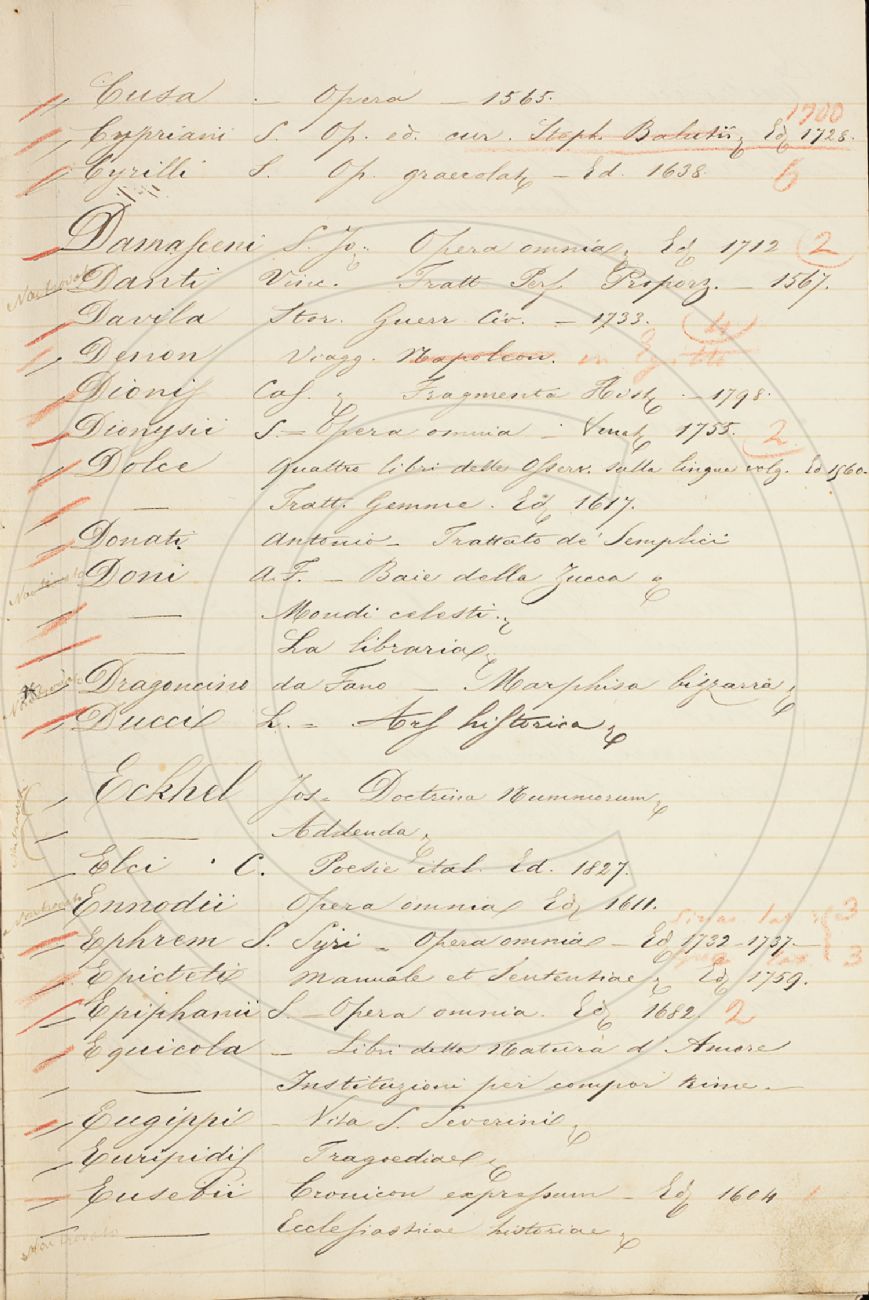 Cusa - Opera - 1565.
1700
Cypriani S. Op. ed. cur. Steph. Balutii, Ed. 1728.
Cyrilli S. Op. graecolat. - Ed. 1638. 6
Damasceni S. Jo. Opera omnia, Ed. 1712 2
Non trovato
Danti Vinc. Tratt. Perf. Proporz. - 1567.
Davila Stor. Guerr. Civ. - 1733. 4
Denon Viagg. Napoleon. in Egitto
Dionis Cas. Fragmenta Hist. - 1798.
Dionysii S. - Opera omnia - Venet. 1755. 2
Dolce Quattro libri delle Osserv. sulla lingua volg. Ed 1560.
— Tratt. Gemme. Ed. 1617.
Donati Antonio - Trattato de' Semplici
Doni A. F. - Baie della Zucca
— Mondi celesti.
— La libraria
Non trovato
Dragoncino da Fano - Marphisa bizzarra
Ducci L. - Ars historica
Eckhel Jos. Doctrina Nummorum
— Addenda
Elci C. Poesie ital. Ed. 1827.
Non trovato
Ennodii Opera omnia Ed. 1611.
3
Ephrem S. Syri - Opera omnia - Ed. 1732-1737. -
3
Epicteti Manuale et Sententiae, Ed. 1759.
Epiphanii S. - Opera omnia. Ed. 1682. 2
Equicola - Libri della Natura d' Amore
— Instituzioni per compor Rime. -
Eugippi - Vita S. Severini
Euripidis Tragoediae
Eusebii Cronicon expressum - Ed. 1604 1
Non trovato
— Ecclesiasticae historiae